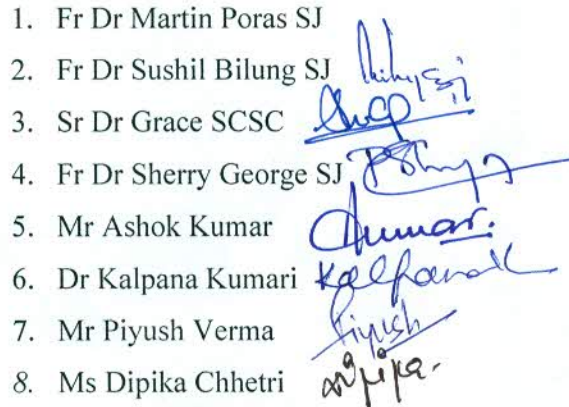 1. Fr Dr Martin Poras SJ
2. Fr Dr Sushil Bilung SJ
3. Sr Dr Grace SCSC
4. Fr Dr Sherry George SJ
5. Mr Ashok Kumar Kumar.
6. Dr Kalpana Kumari Kalpanak
7. Mr Piyush Verma Piyush
8. Ms Dipika Chhetri